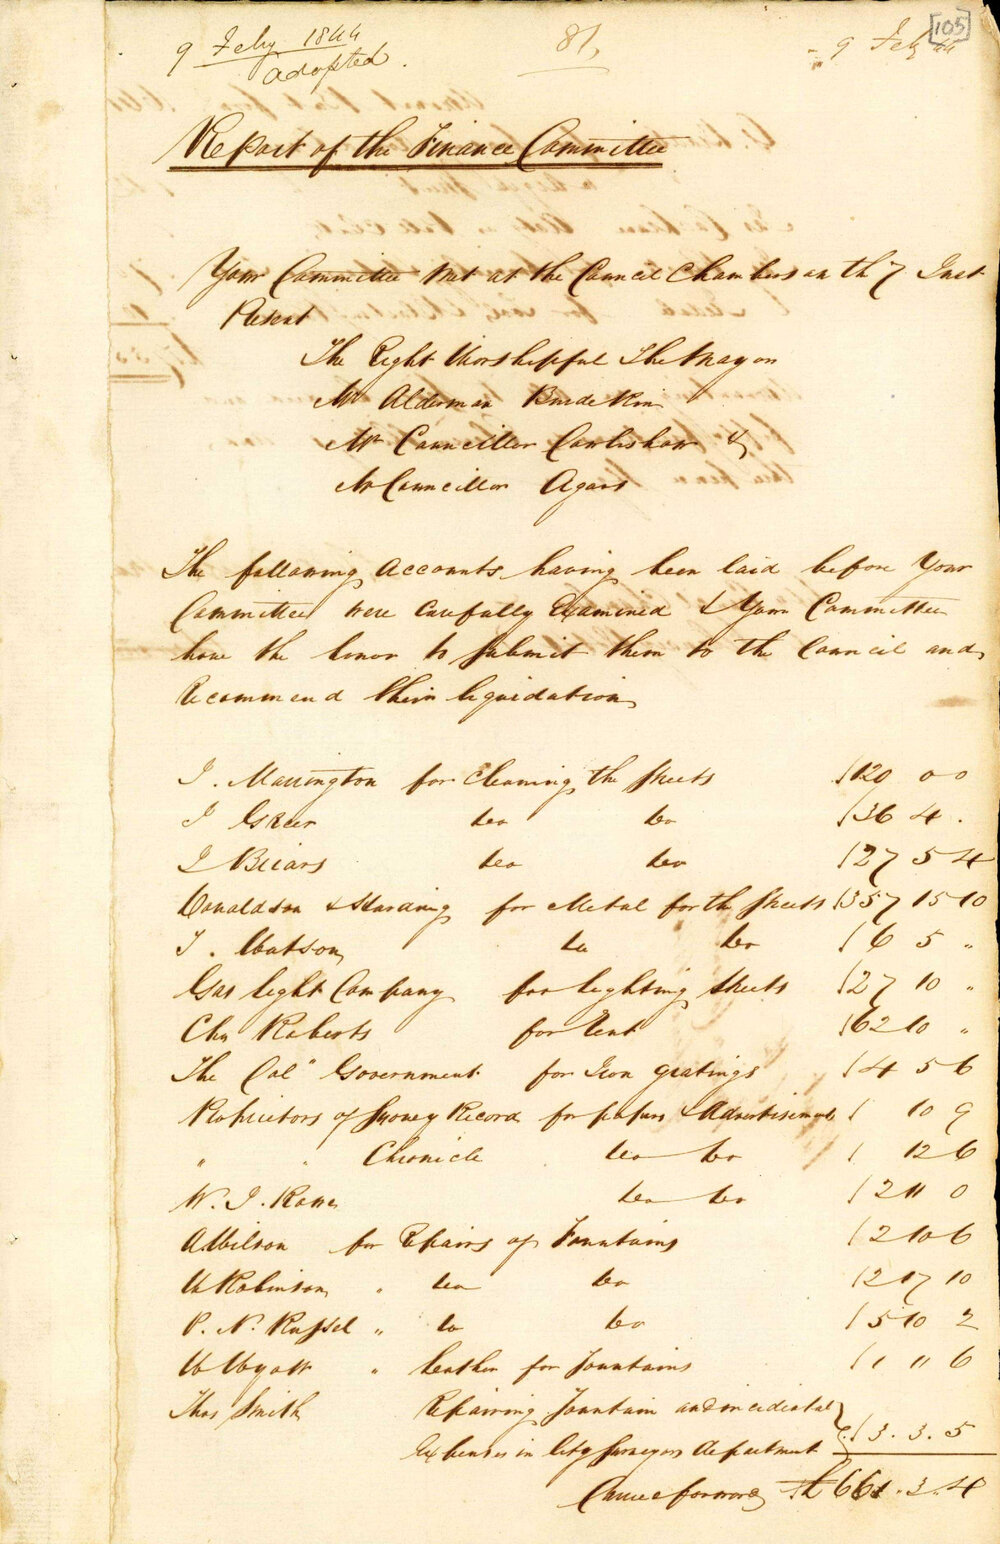 9 Feby 1844
adopted.
81,
9 Feby 44
[105]
Report of the Finance Committee
Your Committee met at the Council Chambers on th 7 Inst
Present
The Right Worshipful The Mayor
Mr Alderman Burdekin
Mr Councillor Caulishaw &
Mr Councillor Agars
The following accounts having been laid before Your
Committee were Carefully Examined & Your Committee
have the honor to submit them to the Council and
Recommend their liquidation
J. Massington for Cleaning the Streets 120 0 0
J Greer do do 36 4 .
J Briars do do 27 5 4
Donaldson & Harding for Metal for th Streets 357 15 10
T. Watson do do 6 5 "
Gas light Company for lighting Streets 27 10 "
Chs Roberts for Rent 62 10 "
The Col" Government for Iron gratings 14 5 6
Proprietors of Sydney Record for papers & Advertisements 10 9
" " Chronicle do do 12 6
W. J. Rowe do do 2 11 0
A Wilson for Repairs of Fountains 2 10 6
W Robinson " do do 2 17 10
P. N. Russel " do do 5 10 2
W Wyatt " leather for Fountains 1 11 6
Thos Smith Repairing Fountain and incidental
Expenses in City Surveyors department 13.3.5
Carried forward £ 661.3.4